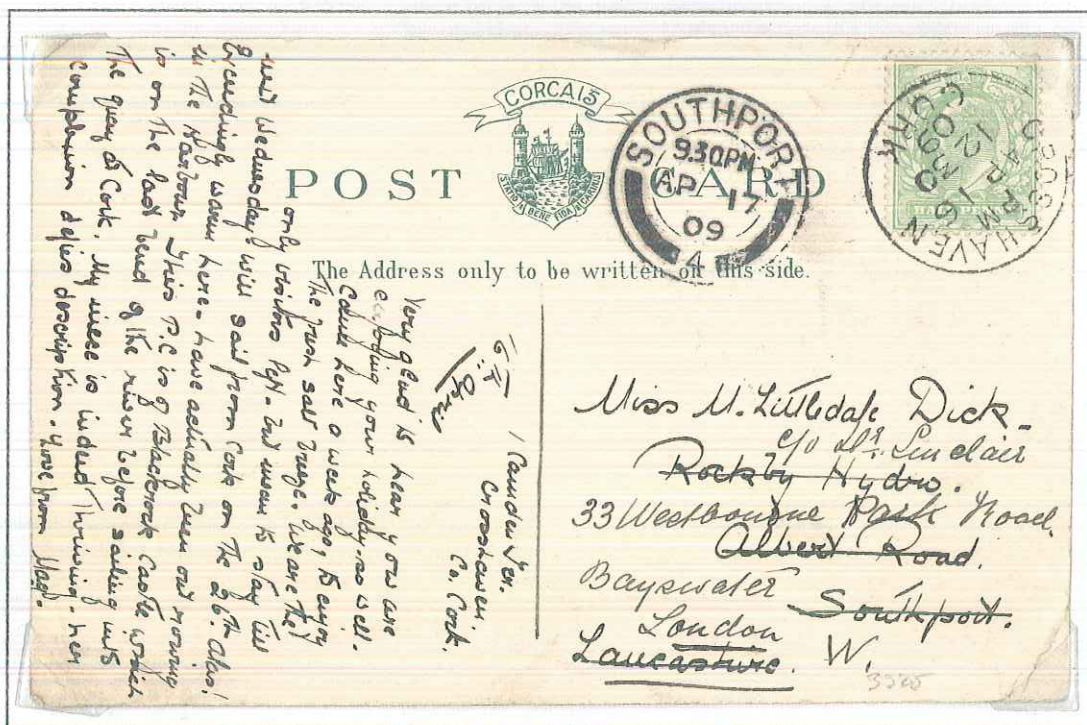 CORCAIS
POST CARD
STATIO BENE FIDA CARINIS
The Address only to be written on this side.
SOUTHPORT
9.30PM
AP 17
09
CROSSHAVEN
CO. CORK
Miss M. Littledale Dick
c/o Dr. Sinclair
Rockby Hydro.
33 Westbourne Park Road
Albert Road.
Bayswater
Southport.
London
Lancashire. W.
1 Camden Ter.
Crosshaven.
Co. Cork.
16th April
Very glad to hear you are
enjoying your holiday so well.
Came here a week ago, to enjoy
the fresh salt breeze. We are the
only visitors left. but mean to stay till
next Wednesday & will sail from Cork on the 26th alas!
Exceedingly warm here - have actually been out rowing
in the Harbour. This P.C is of Blackrock Castle which
is on the last bend of the river before sailing into
the quay at Cork. My niece is indeed thriving - her
complexion defies description. Love from